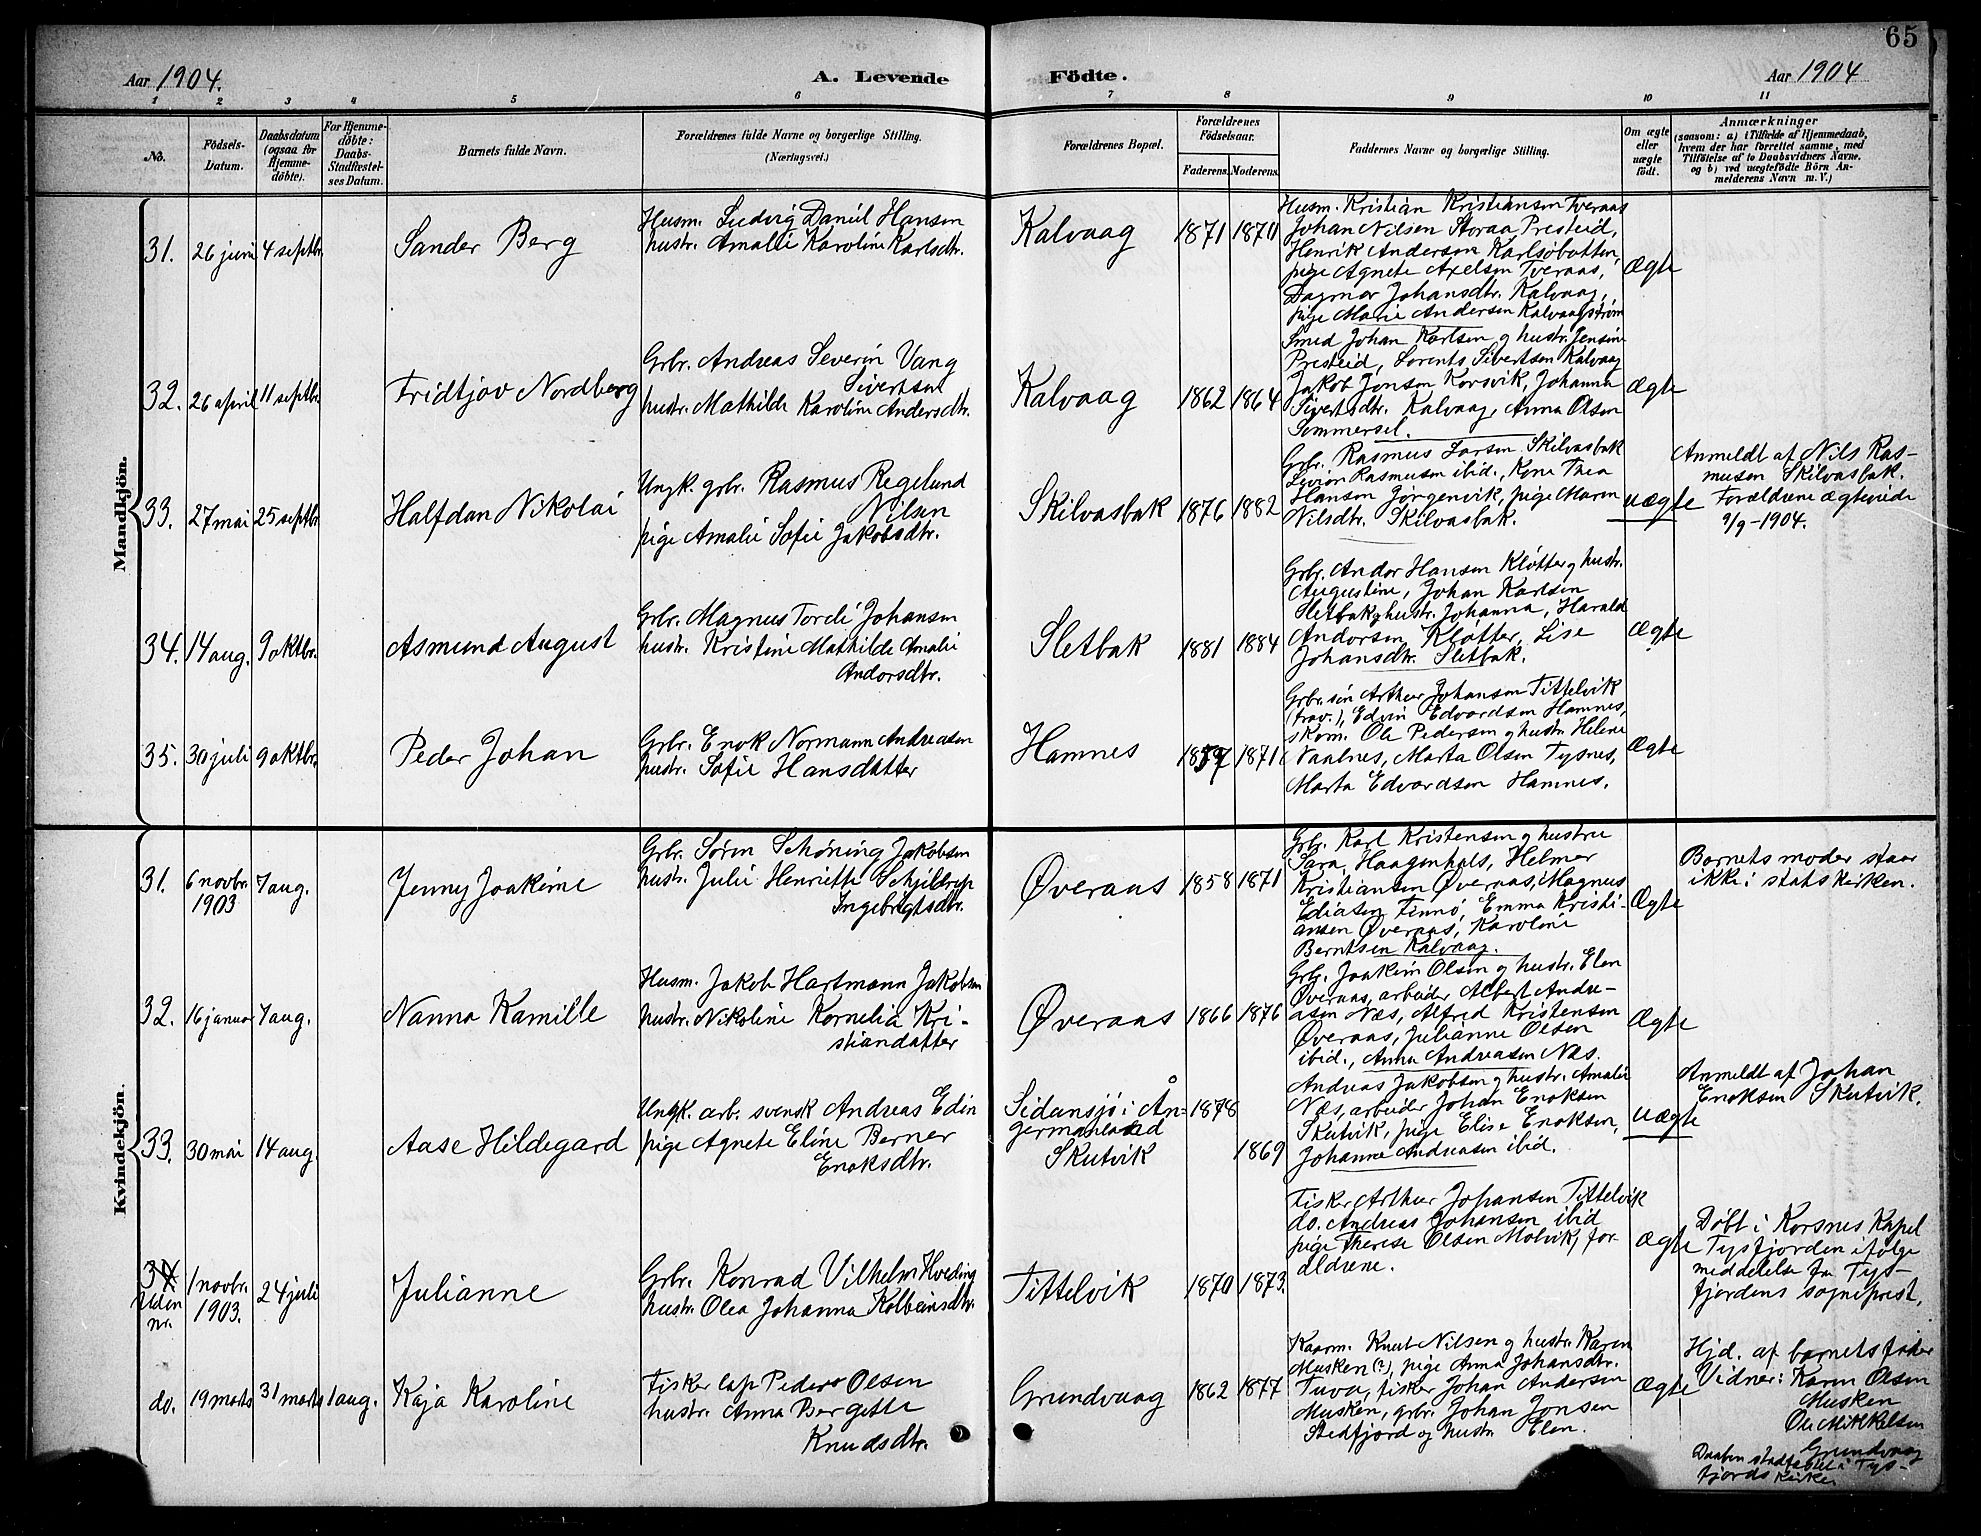 65
Aar 1904.
A. Levende Födte.
Aar 1904
1 2 3 4 5 6 7 8 9 10 11
No.
Födsels-
Datum.
Daabsdatum
(ogsaa for
Hjemme-
döbte).
For Hjemme-
döbte:
Daabs-
Stadfæstel-
ses Datum.
Barnets fulde Navn.
Forældrenes fulde Navne og borgerlige Stilling.
(Næringsvei.)
Forældrenes Bopæl.
Forældrenes
Födselsaar.
Faderens. Moderens.
Faddernes Navne og borgerlige Stilling.
Om ægte
eller
uægte
født.
Anmærkninger
(saasom: a) i Tilfælde af Hjemmedaab,
hvem der har forrettet samme, med
Tilföielse af to Daabsvidners Navne,
og b) ved uægtefödte Börn An-
melderens Navn m. V.)
Mandkjön.
31. 26 juni 4 septbr. Sander Berg
Husm. Ludvig Daniel Hansen
hustr. Amalie Karoline Karlsdtr.
Kalvaag 1871 1870
Husm. Kristian Kristiansen Tveraas
Johan Nilsen Storaa, Presteid,
Henrik Andersen Karlsøbotten,
pige Agnete Axelsen Tveraas,
Dagmar Johansdtr. Kalvaag,
pige Marie Andersen Kalvaagstrøm
Ægte
32. 26 april 11 septbr. Fridtjov Nordberg
Grbr. Andreas Severin Vang
Sivertsen
hustr. Mathilde Karoline Andersdtr.
Kalvaag 1862 1864
Smed Johan Karlsen og hustr. Jensine
Presteid, Lorents Sivertsen Kalvaag
Jakob Jonsen Korsvik, Johanna
Sivertsdtr. Kalvaag, Anna Olsen
Sommersel.
Ægte
33. 27 mai 25 septbr. Halfdan Nikolai
Ungk. grbr. Rasmus Regelund
Nilsen
pige Amalie Sofie Jakobsdtr.
Skilvasbak 1876 1882
Grbr. Rasmus Larsen Skilvasbak
Rasmusen ibid., Kone Thea
Hansen Jørgenvik, pige Maren
Nilsdtr. Skilvasbak.
uægte
Anmeldt af Nils Ras-
musen Skilvasbak.
Forældrene ægteviede
9/9-1904.
34. 14 aug. 9 oktbr. Asmund August
Grbr. Magnus Tordi Johansen
hustr. Kristine Mathilde Amalie
Andorsdtr.
Sletbak 1881 1884
Grbr. Andor Hansen Kløtter og hustr.
Augustine, Johan Karlsen
Sletbak og hustr. Johanna, Harald
Andorsen Kløtter, Lise
Johansdtr. Sletbak.
Ægte
35. 30 juli 9 oktbr. Peder Johan
Grbr. Enok Normann Andreasen
hustr. Sofie Hansdatter
Hamnes 1871
Grbr. søn Arthur Johansen Tittelvik
(frav.), Edvin Edvardsen Hamnes,
skom. Ole Pedersen og hustr. Helene
Naalnes, Marta Olsen Tysnes,
Marta Edvardsen Hamnes.
Ægte
Kvindekjön.
31. 6 novbr. 1903 7 aug. Jenny Joakime
Grbr. Søren Schøning Jakobsen
hustr. Julie Henriette Schjeltrup
Ingebrigtsdtr.
Øveraas 1858 1871
Grbr. Karl Kristensen og hustru
Sara, Haagenhals, Helmer
Kristiansen Øveraas, Magnus
Ediasen Finnø, Emma Kristi-
ansen Øveraas, Karoline
Berntsen Kalvaag.
Ægte
Barnets moder staar
ikke i statskirken.
32. 16 januar 7 aug. Nanna Kamille
Husm. Jakob Hartmann Jakobsen
hustr. Nikoline Kornelia Kri-
stiandatter
Øveraas 1866 1876
Grbr. Joakim Olsen og hustr. Elen
Øveraas, arbeider Albert Andre-
asen Næs, Alfred Kristensen
Øveraas, Julianne Olsen
ibid., Anna Andreasen Næs.
Ægte
33. 30 mai 14 aug. Aase Hildegard
Ungk. arb. svensk Andreas Edin
pige Agnete Eline Berner
Enoksdtr.
Sidansjø i Ån-
germanland
Skutvik
1878 1869
Andreas Jakobsen og hustr. Amalie
Næs, arbeider Johan Enoksen
Skutvik, pige Elise Enoksen,
Johanne Andreasen ibid.
uægte
Anmeldt af Johan
Enoksen Skutvik.
34
Uden
nr.
1 novbr. 1903. 24 juli Julianne
Grbr. Konrad Vilhelm Hveding
hustr. Olea Johanna Kolbeinsdtr.
Tittelvik 1870 1873.
Fisker Arthur Johansen Tittelvik
do. Andreas Johansen ibid
pige Therese Olsen Molvik, for-
ældrene.
Ægte
Døbt i Korsnes Kapel
Tysfjorden ifølge
meddelelse fra Tys-
fjordens sogneprest.
do. 19 marts 31 marts 1 aug. Kaja Karoline
Fisker lap Peder Olsen
hustr. Anna Bergette
Knudsdtr.
Grundvaag 1862 1877
Kaarm. Knut Nilsen og hustr. Karen
Musken (?), pige Anna Johansdtr.
Tuva, fisker Johan Andersen
Musken, grbr. Johan Jonsen
Stedfjord og hustr. Elen.
Ægte
Hjd. af barnets fader
Vidner: Karen Olsen
Musken
Ole Mikkelsen
Grundvaag
Daaben stadfæstet i Tys-
fjords kirke